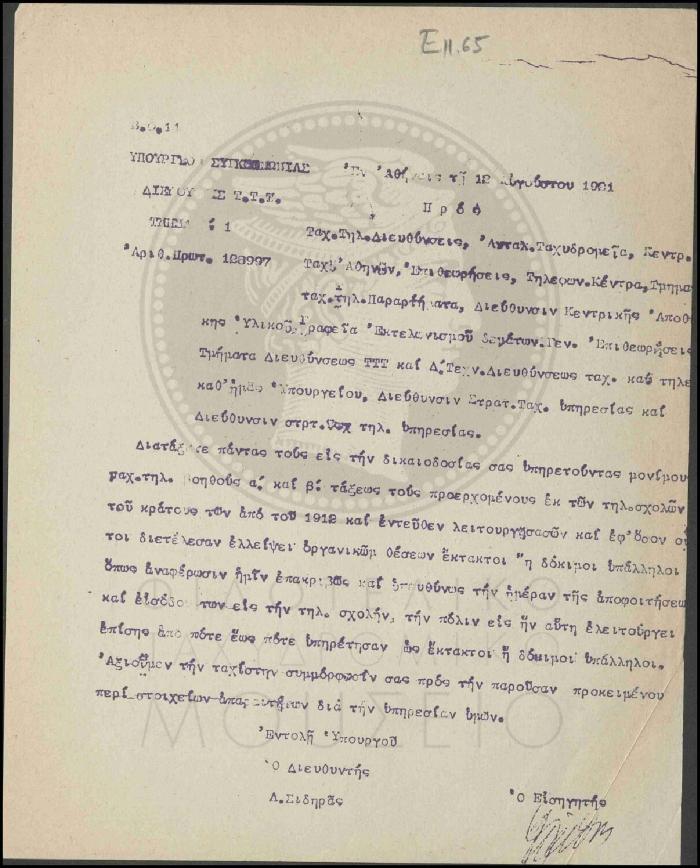 Ε 11.65
Β.Φ.11
ΥΠΟΥΡΓΕΙΟ ΣΥΓΚΟΙΝΩΝΙΑΣ Ἐν Ἀθήναις τῇ 12 Αὐγούστου 1921
ΔΙΕΥΘΥΝΣΙΣ Τ.Τ.Τ. Πρὸς
ΤΜΗΜΑ 1 Ταχ.Τηλ.Διευθύνσεις, Ἀνταλ.Ταχυδρομεῖα, Κεντρ.
Ἀριθ.Πρωτ. 128997 Ταχ. Ἀθηνῶν, Ἐπιθεωρήσεις, Τηλεφων.Κέντρα, Τμημα
ταχ.τηλ.Παραρτήματα, Διεύθυνσιν Κεντρικῆς Ἀποθ
κης Ὑλικοῦ Γραφεῖα Ἐκτελωνισμοῦ δεμάτων.Γεν. Ἐπιθεωρήσεις
Τμήματα Διευθύνσεως ΤΤΤ καὶ Δ.Τεχν.Διευθύνσεως ταχ. καὶ τηλε
καθ'ἡμᾶς Ὑπουργείου, Διεύθυνσιν Στρατ.Ταχ. ὑπηρεσίας καὶ
Διεύθυνσιν στρτ. τηλ. ὑπηρεσίας.
Διατάξατε πάντας τοὺς εἰς τὴν δικαιοδοσίας σας ὑπηρετοῦντας μονίμου
ταχ.τηλ. βοηθοὺς α΄. καὶ β΄. τάξεως τοὺς προερχομένους ἐκ τῶν τηλ.σχολῶν
τοῦ κράτους τῶν ἀπὸ τοῦ 1912 καὶ ἐντεῦθεν λειτουργησασῶν καὶ ἐφ'ὅσον οὗ
τοι διετέλεσαν ἐλλείψει ὀργανικῶμ θέσεων ἔκτακτοι ἢ δόκιμοι ὑπάλληλοι
ὅπως ἀναφέρωσιν ἡμῖν ἐπακριβῶς καὶ ὑπευθύνως τὴν ἡμέραν τῆς ἀποφοιτήσεω
καὶ εἰσόδου των εἰς τὴν τηλ. σχολήν, τὴν πόλιν εἰς ἣν αὕτη ἐλειτούργει
ἐπίσης ἀπὸ πότε ἕως πότε ὑπηρέτησαν ὡς ἔκτακτοι ἢ δόκιμοι ὑπάλληλοι.
Ἀξιοῦμεν τὴν ταχίστην συμμόρφωσίν σας πρὸς τὴν παροῦσαν προκειμένου
περὶ στοιχείων ἀπαραιτήτων διὰ τὴν ὑπηρεσίαν ὑμῶν.
Ἐντολῇ Ὑπουργοῦ
Ὁ Διευθυντής
Λ.Σιδηρᾶς Ὁ Εἰσηγητής
ΦΙΛΟΤΕΛΙΚΟ
ΤΑΧΥΔΡΟΜΙΚΟ
ΜΟΥΣΕΙΟ